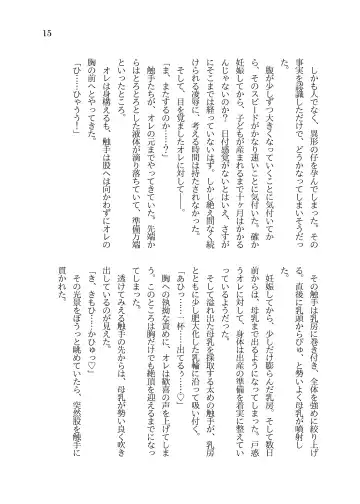 15
しかも人でなく、異形の仔を孕んでしまった。その
事実を認識しただけで、どうかなってしまいそうだっ
た。
腹が少しずつ大きくなっていくことに気付いてか
ら、そのスピードがかなり速いことに気付いた。確か
妊娠してから、子どもが産まれるまで十ヶ月はかかる
んじゃないのか？　日付感覚がないとはいえ、さすが
にそこまでは経っていないはず。しかし絶え間なく続
けられる凌辱に、考える時間は持たされなかった。
そして、目を覚ましたオレに対して――。
「ま、またするのか……？」
触手たちが、オレの元までやってきていた。先端か
らはとろとろとした液体が滴り落ちていて、準備万端
といったところ。
オレは身構えるも、触手は股へは向かわずにオレの
胸の前へとやってきた。
「ひ……ひゃうう！」
その触手は乳房に巻き付き、全体を強めに絞り上げ
る。直後に乳頭からぴゅ、と勢いよく母乳が噴射し
た。
妊娠してから、少しだけ膨らんだ乳房。そして数日
前からは、母乳まで出るようになってしまった。戸惑
うオレに対して、身体は出産の準備を着実に整えてい
っているようだった。
そして溢れ出た母乳を採取する太めの触手が、乳房
とともに少し肥大化した乳輪に沿って吸い付く。
「あひっ……一杯……出てるぅ……♡」
胸への執拗な責めに、オレは歓喜の声を上げてしま
う。このところは胸だけでも絶頂を迎えるまでになっ
てしまった。
透けてみえる触手の先からは、母乳が勢い良く吹き
出しているのが見えた。
「き、きもひ……かひゅっ♡」
その光景をぼうっと眺めていたら、突然股を触手に
貫かれた。